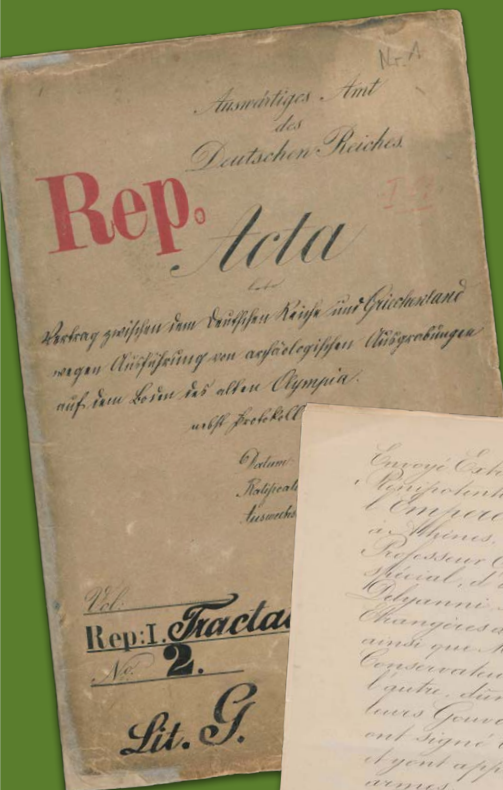 Nr. 1
Auswärtiges Amt
des
Deutschen Reiches.
Rep.
Acta
Vertrag zwischen dem Deutschen Reiche und Griechenland
wegen Ausführung von archäologischen Ausgrabungen
auf dem Boden des alten Olympia.
nebst Protokoll
Datum
Ratificati
Auswechs
Vol:
Rep: I. Tracta
No. 2.
Lit. G.
Envoyé Extr
Plénipotent
l'Empere
à Athènes,
Professeur
spécial, d
Délyanni
Etrangères
ainsi que M
Conservateu
l'autre, dûm
leurs Gouve
ont signé
et y ont app
armes